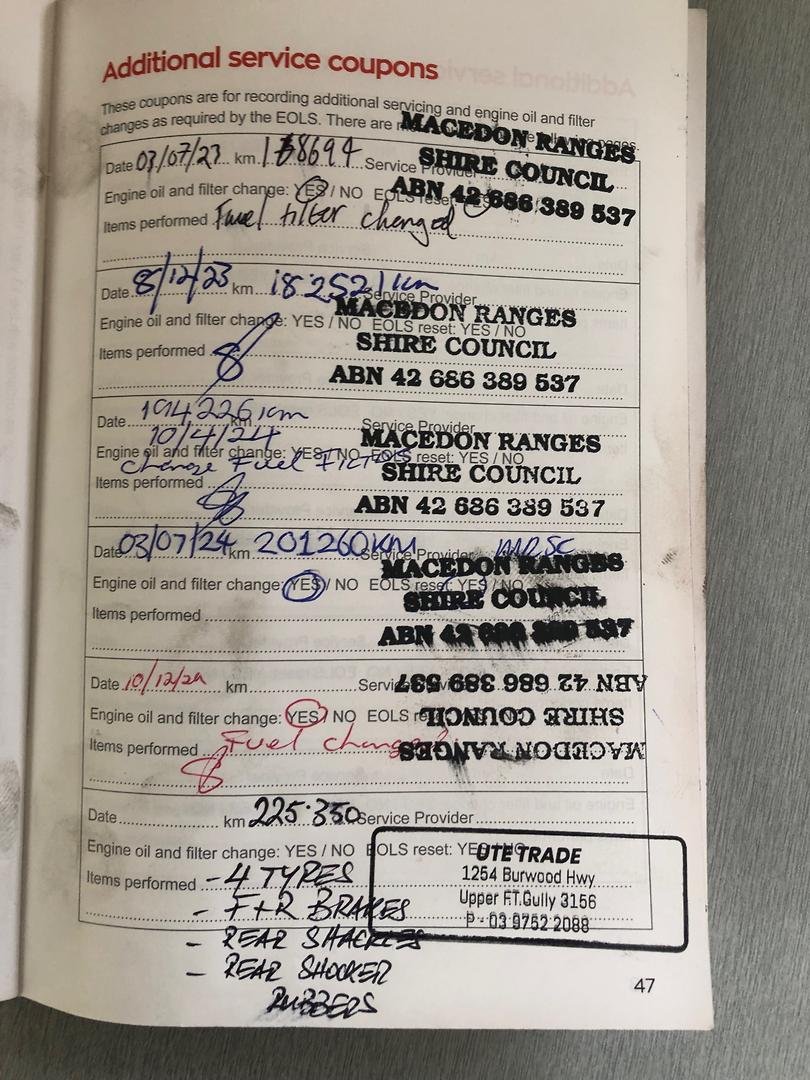 Additional service coupons
These coupons are for recording additional servicing and engine oil and filter
changes as required by the EOLS. There are pages.
MACEDON RANGES
SHIRE COUNCIL
ABN 42 686 389 537
Date 03/07/23 km 168694 Service Provider
Engine oil and filter change: YES / NO EOLS reset:
Items performed Fuel filter changed
Date 8/12/23 km 182521 km Service Provider
MACEDON RANGES
Engine oil and filter change: YES / NO EOLS reset: YES / NO
SHIRE COUNCIL
Items performed
ABN 42 686 389 537
Date 194226 km km Service Provider
10/4/24
MACEDON RANGES
Engine oil and filter change: YES / NO EOLS reset: YES / NO
Change Fuel Filters
SHIRE COUNCIL
Items performed
ABN 42 686 389 537
Date 03/07/24 km 201260KM Service Provider MRSC
MACEDON RANGES
Engine oil and filter change: YES / NO EOLS reset: YES / NO
SHIRE COUNCIL
Items performed
ABN 42 686 389 537
Date 10/12/24 km Service
ABN 42 686 389 537
Engine oil and filter change: YES / NO EOLS
SHIRE COUNCIL
Items performed Fuel changed
MACEDON RANGES
Date km 225.350 Service Provider
Engine oil and filter change: YES / NO EOLS reset: YES / NO
UTE TRADE
1254 Burwood Hwy
Upper F.T.Gully 3156
P - 03 9752 2088
Items performed - 4 TYRES
- F+R BRAKES
- REAR SHACKLES
- REAR SHOCKER
RUBBERS
47